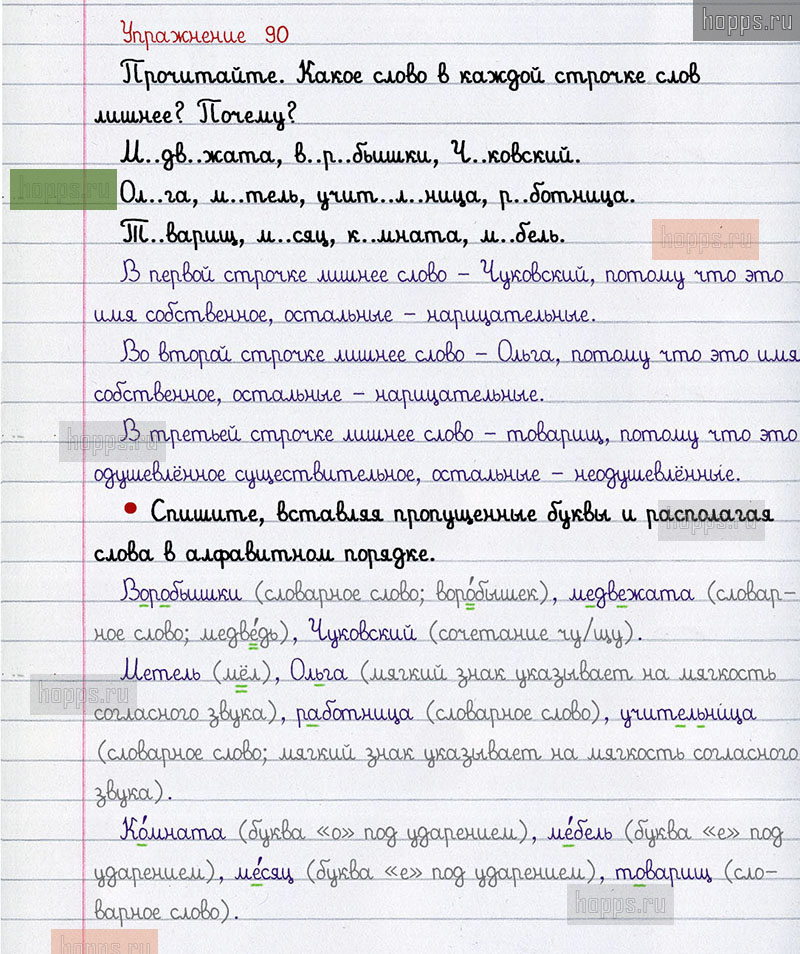 hopps.ru
Упражнение 90
Прочитайте. Какое слово в каждой строчке слов
лишнее? Почему?
М..дв..жата, в..р..бышки, Ч..ковский.
hopps.ru
Ол..га, м..тель, учит..л..ница, р..ботница.
Т..варищ, м..сяц, к..мната, м..бель.
hopps.ru
В первой строчке лишнее слово – Чуковский, потому что это
имя собственное, остальные – нарицательные.
Во второй строчке лишнее слово – Ольга, потому что это имя
собственное, остальные – нарицательные.
hopps.ru
В третьей строчке лишнее слово – товарищ, потому что это
одушевлённое существительное, остальные – неодушевлённые.
• Спишите, вставляя пропущенные буквы и располагая
hopps.ru
слова в алфавитном порядке.
Воробышки (словарное слово; воро́бышек), медвежата (словар-
ное слово; медве́дь), Чуковский (сочетание чу/щу).
Метель (мёл), Ольга (мягкий знак указывает на мягкость
hopps.ru
согласного звука), работница (словарное слово), учительница
(словарное слово; мягкий знак указывает на мягкость согласного
звука).
Ко́мната (буква «о» под ударением), ме́бель (буква «е» под
ударением), ме́сяц (буква «е» под ударением), товарищ (сло-
hopps.ru
варное слово).
hopps.ru